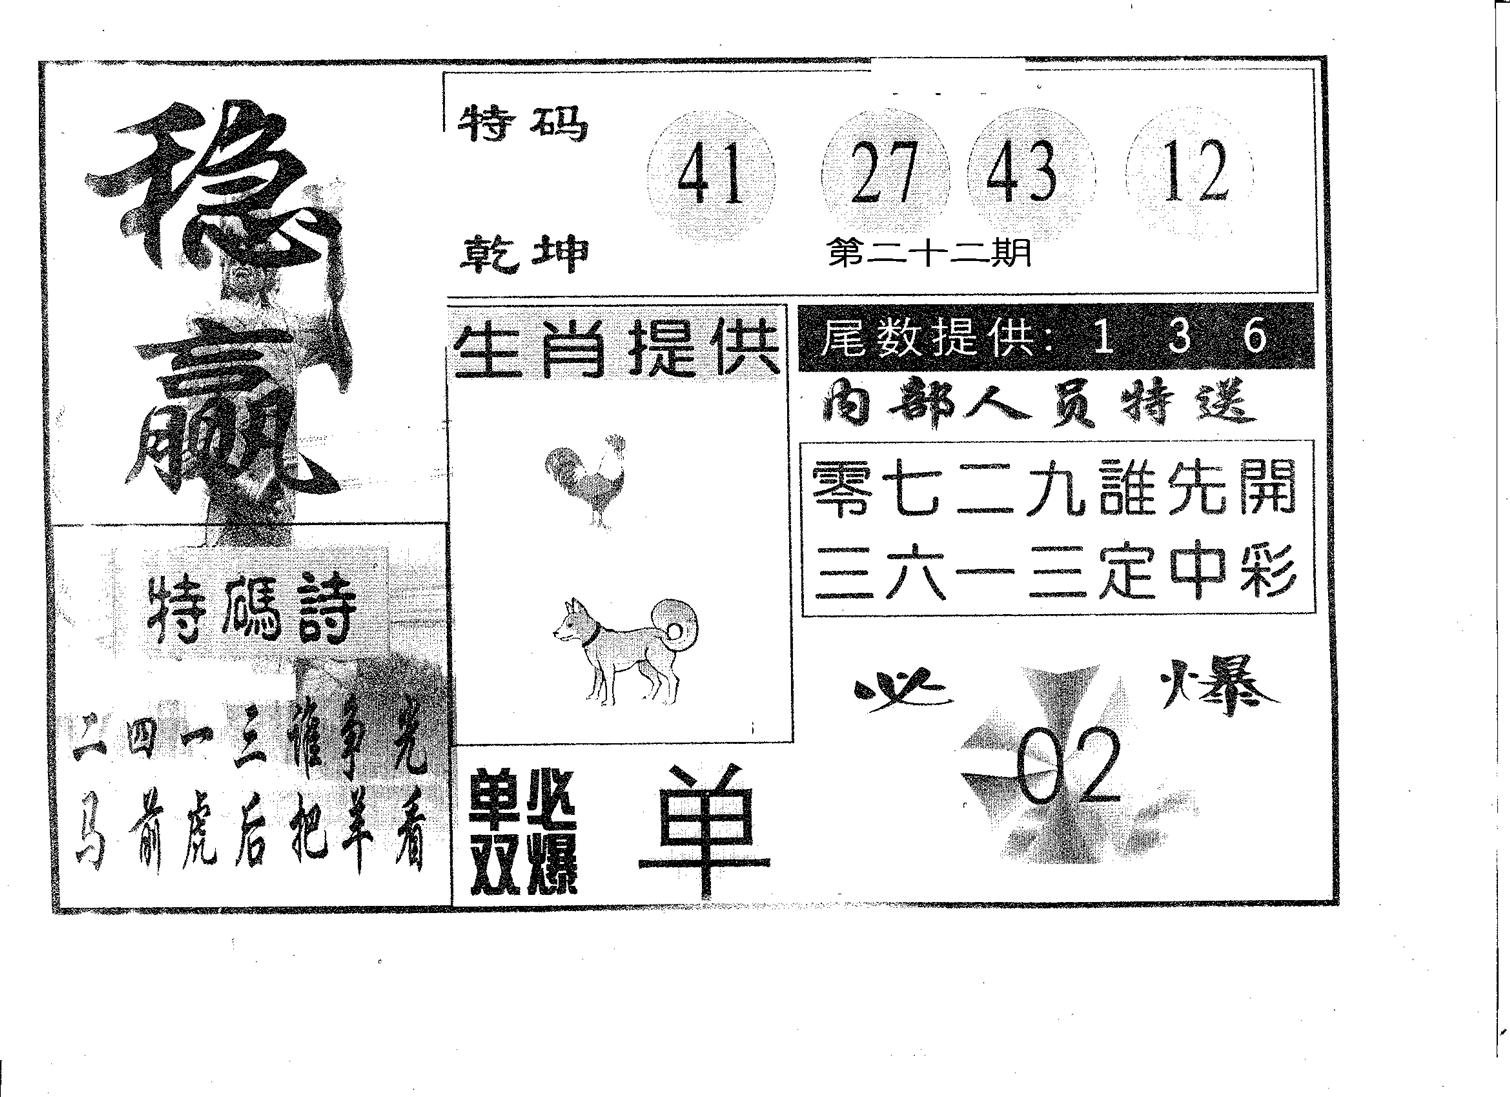 稳
赢
特码
41 27 43 12
乾坤
第二十二期
生肖提供
尾数提供：1 3 6
内部人员特送
零七二九誰先開
三六一三定中彩
特碼詩
二四一三谁争光
马前虎后把羊看
必爆
02
单双
必爆
单